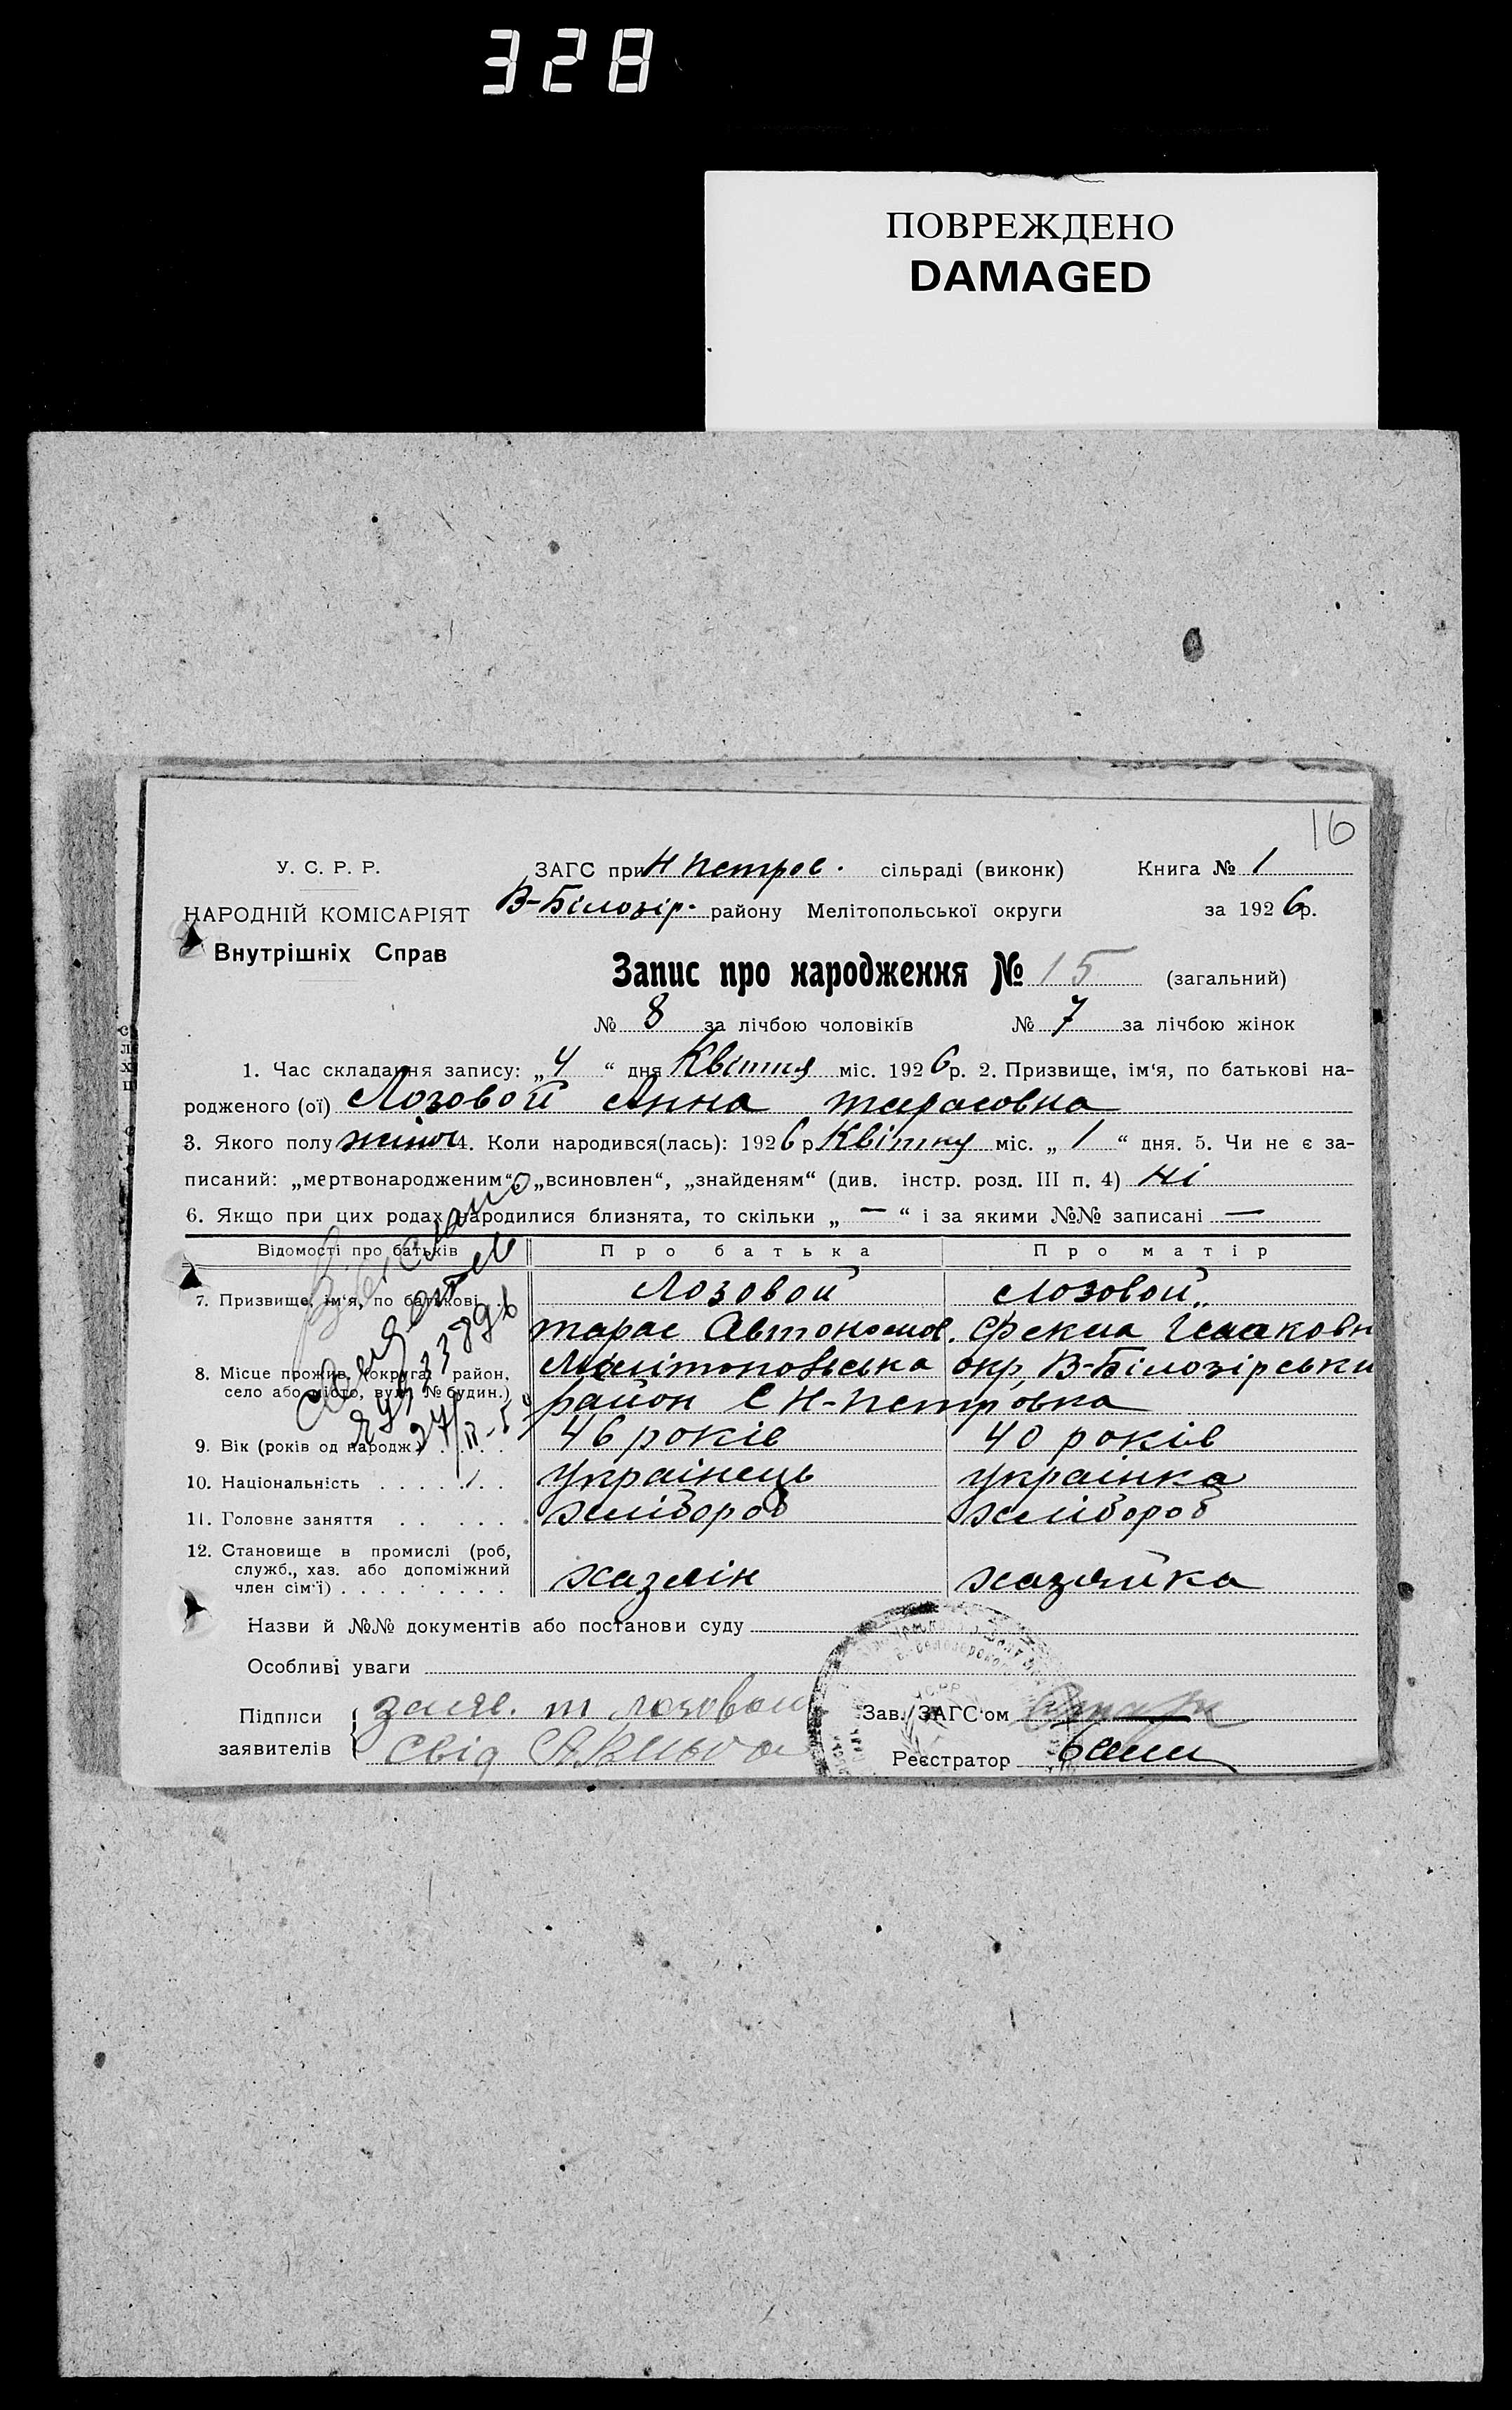 328
ПОВРЕЖДЕНО
DAMAGED
16
У. С. Р. Р.
НАРОДНІЙ КОМІСАРІЯТ
Внутрішніх Справ
ЗАГС при Н Петров. сільраді (виконк) Книга № 1
В-Білозір. району Мелітопольської округи за 1926р.
Запис про народження № 15 (загальний)
№ 8 за лічбою чоловіків № 7 за лічбою жінок
1. Час складання запису: „4“ дня Квітня міс. 1926р. 2. Призвище, ім‘я, по батькові на-
родженого (ої) Лозовой Анна тарасовна
3. Якого полу жіноч 4. Коли народився(лась): 1926р Квітня міс. „1“ дня. 5. Чи не є за-
писаний: „мертвонародженим“, „всиновлен“, „знайденям“ (див. інстр. розд. III п. 4) ні
6. Якщо при цих родах народилися близнята, то скільки „—“ і за якими №№ записані —
Відомості про батьків Про батька Про матір
7. Призвище, ім‘я, по батькові Лозовой Лозовой
тарас Автономов. Фекла Ісаковн
8. Місце прожив. (округа, район, Мелітопольська окр, В-Білозірськи
село або місто, вул. № будин.) район С Н-петровка
9. Вік (років од народж.) 46 років 40 років
10. Національність українець українка
11. Головне заняття хлібороб хлібороб
12. Становище в промислі (роб,
служб., хаз. або допоміжний
член сім‘ї) хазяін хазяйка
Назви й №№ документів або постанови суду
Особливі уваги
Підписи заяв. т лозовой Зав. ЗАГС‘ом
заявителів свід Реєстратор